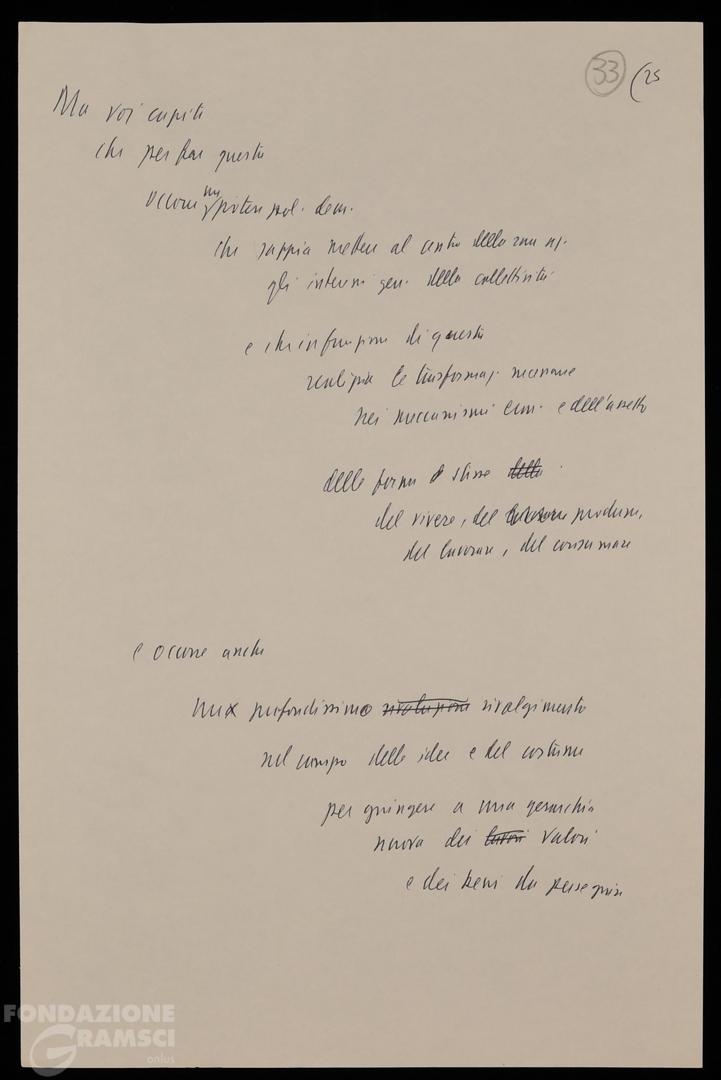 33 (25
Ma voi capite
che per far questo
occorre un potere pol. dem.
che sappia mettere al centro della sua az.
gli interessi gen. della collettività
e che in funzione di questo
realizzi le trasformaz. necessarie
nei meccanismi econ. e dell'assetto
delle forme stesse della
del vivere, del lavorare produrre,
del lavorare, del consumare
e occorre anche
un profondissimo rivoluzione rivolgimento
nel campo delle idee e del costume
per giungere a una gerarchia
nuova dei lavori valori
e dei beni da perseguire
FONDAZIONE
GRAMSCI
onlus